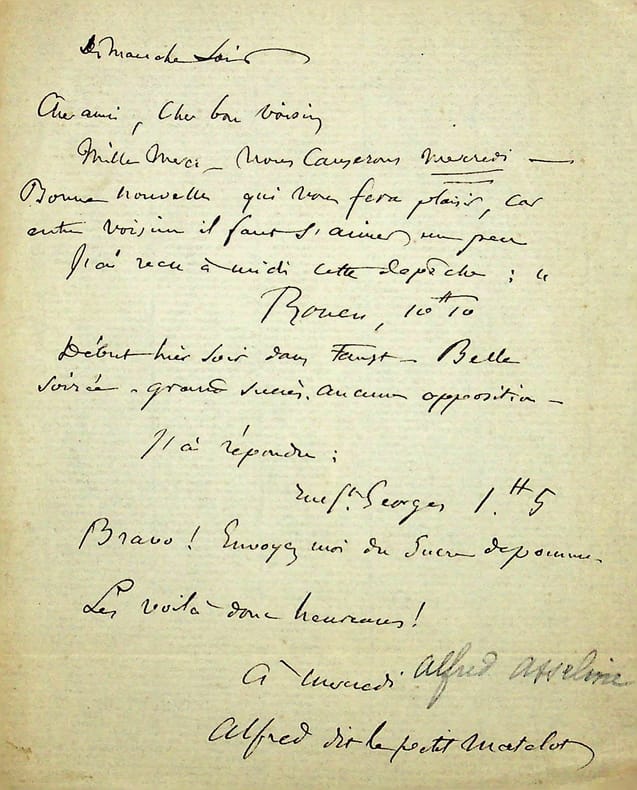 Dimanche Soir
Cher ami, Cher bon voisin
Mille Merci _ nous Causerons mercredi _
Bonne nouvelle qui vous fera plaisir, car
entre voisins il faut s'aimer un peu
J'ai recu à midi cette dépêche : "
Rouen, 10H 10
Début hier soir dans Faust _ Belle
soirée _ grand succès. aucune opposition _
J'ai répondu :
rue St. Georges 1.H 5
Bravo ! Envoyez moi du Sucre de pomme.
Les voilà donc heureux !
à mercredi Alfred Asseline
Alfred dit le petit Matelot